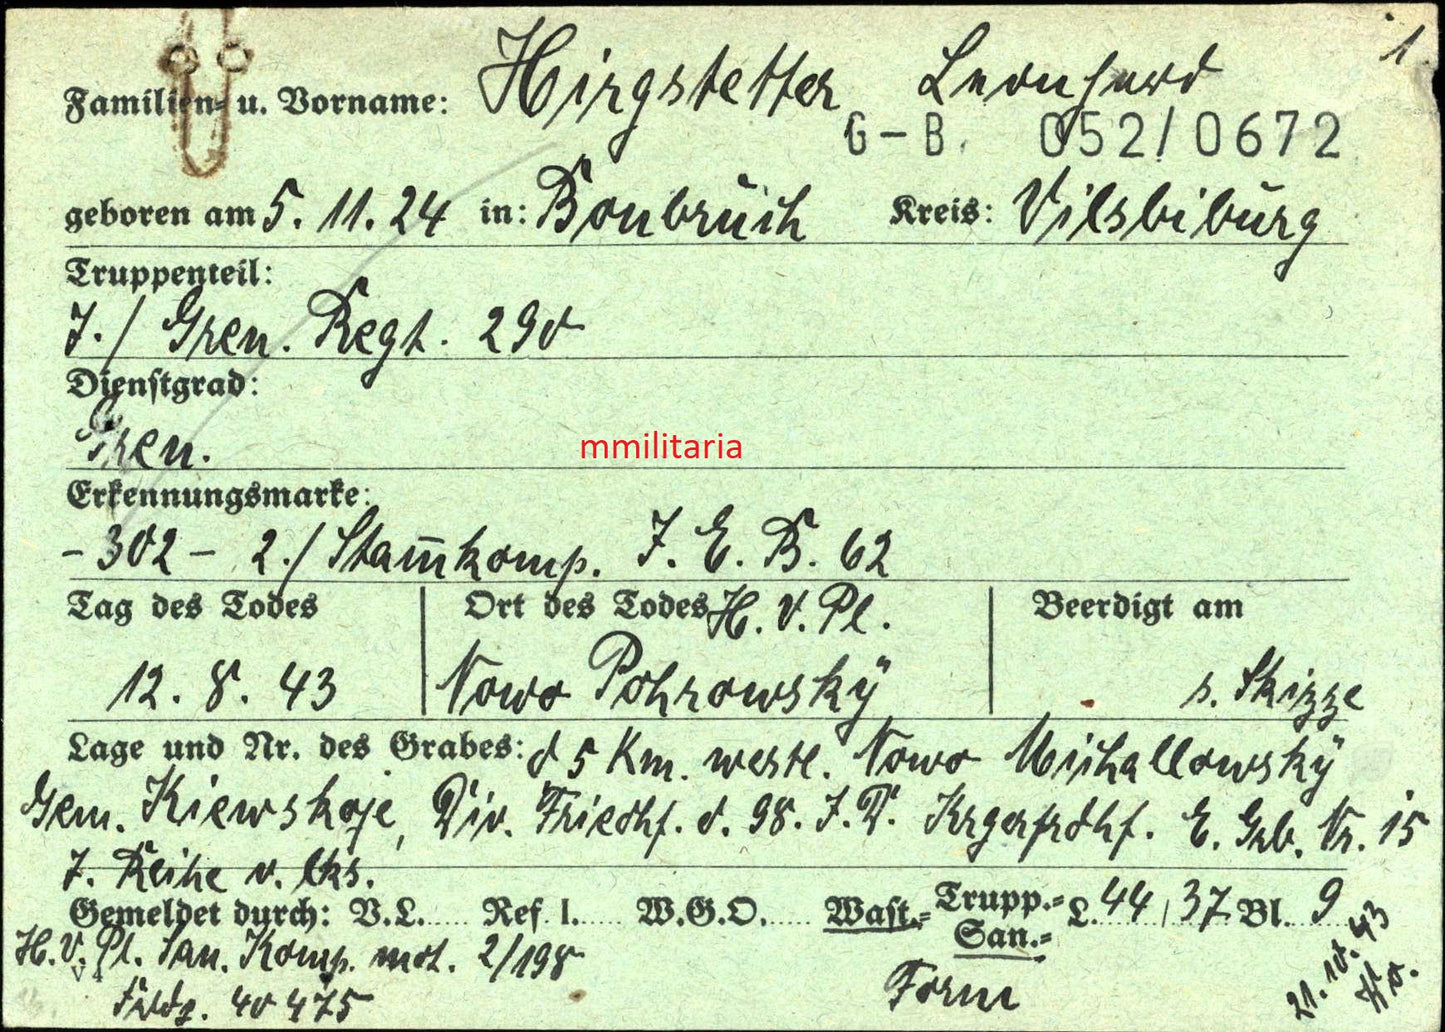 1
Familien- u. Vorname: Hirgstetter Leonhard
G-B. 052/0672
geboren am 5. 11. 24 in: Bonbruch Kreis: Vilsbiburg
Truppenteil:
7./ Gren. Regt. 290
Dienstgrad:
Gren.
mmilitaria
Erkennungsmarke:
-302- 2./ Stam̅komp. J. E. B. 62
Tag des Todes Ort des Todes H. V. Pl. Beerdigt am
12. 8. 43 Nowo Pohrowsky s. Skizze
Lage und Nr. des Grabes: 5 Km. westl. Nowo Michallowsky
Gem. Kiewskoje, Div. Friedhf. d. 98. J. D. E. Grb. Nr. 15
7. Reihe v. lks.
Gemeldet durch: V.L. Ref. I. W.G.O. Wast.= Trupp.= L. 44, 37 Bl. 9
San.=
H. V. Pl. San. Komp. mot. 2/198
Form
40 475
21. 10. 43